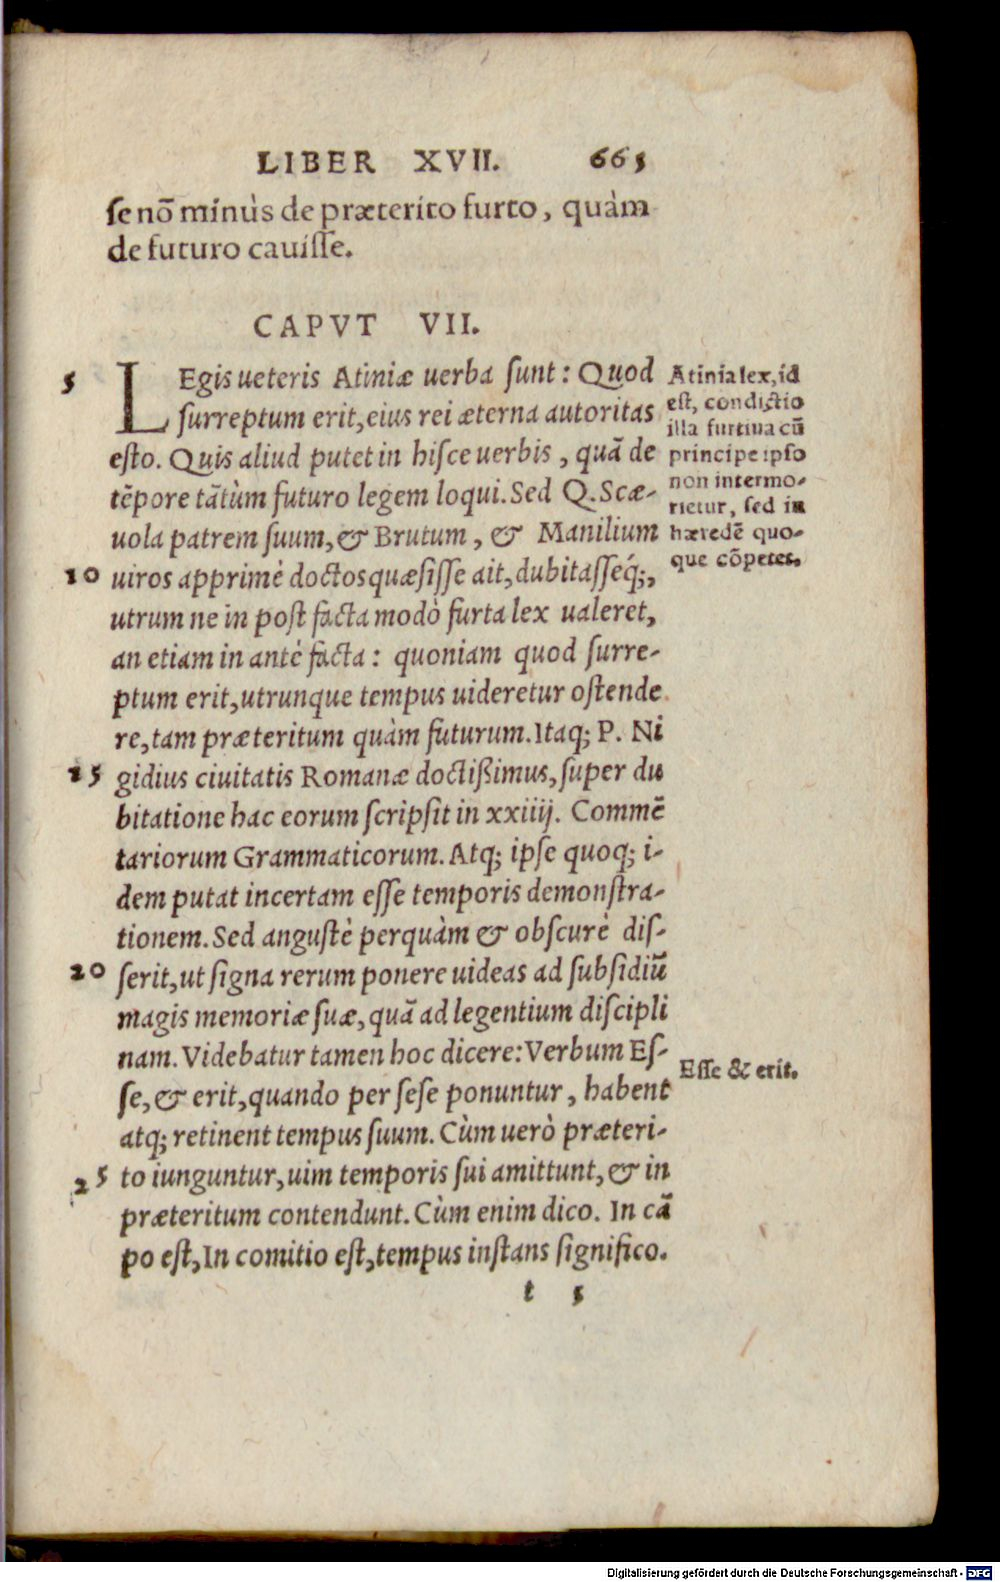 LIBER XVII. 665
se nō minùs de præterito furto, quàm
de futuro cavisse.
CAPVT VII.
5 LEgis ueteris Atiniæ uerba sunt: Quod
surreptum erit, eius rei æterna autoritas
esto. Quis aliud putet in hisce uerbis, quā de
tēpore tātùm futuro legem loqui. Sed Q. Scæ-
uola patrem suum, & Brutum, & Manilium
10 uiros apprimè doctos quæsisse ait, dubitasséq;,
utrum ne in post facta modò furta lex ualeret,
an etiam in antè facta: quoniam quod surre-
ptum erit, utrunque tempus uideretur ostende
re, tam præteritum quàm futurum. Itaq; P. Ni
15 gidius ciuitatis Romanæ doctißimus, super du
bitatione hac eorum scripsit in xxiiij. Commē
tariorum Grammaticorum. Atq; ipse quoq; i-
dem putat incertam esse temporis demonstra-
tionem. Sed angustè perquàm & obscurè dis-
20 serit, ut signa rerum ponere uideas ad subsidiū
magis memoriæ suæ, quā ad legentium discipli
nam. Videbatur tamen hoc dicere: Verbum Es-
se, & erit, quando per sese ponuntur, habent
atq; retinent tempus suum. Cùm uerò præteri-
25 to iunguntur, uim temporis sui amittunt, & in
præteritum contendunt. Cùm enim dico. In cā
po est, In comitio est, tempus instans significo.
t 5
Atinia lex, id
est, condictio
illa furtiua cū
principe ipso
non intermo-
rietur, sed in
hæredē quo-
que cōpetes.
Esse & erit.
Digitalisierung gefördert durch die Deutsche Forschungsgemeinschaft - DFG